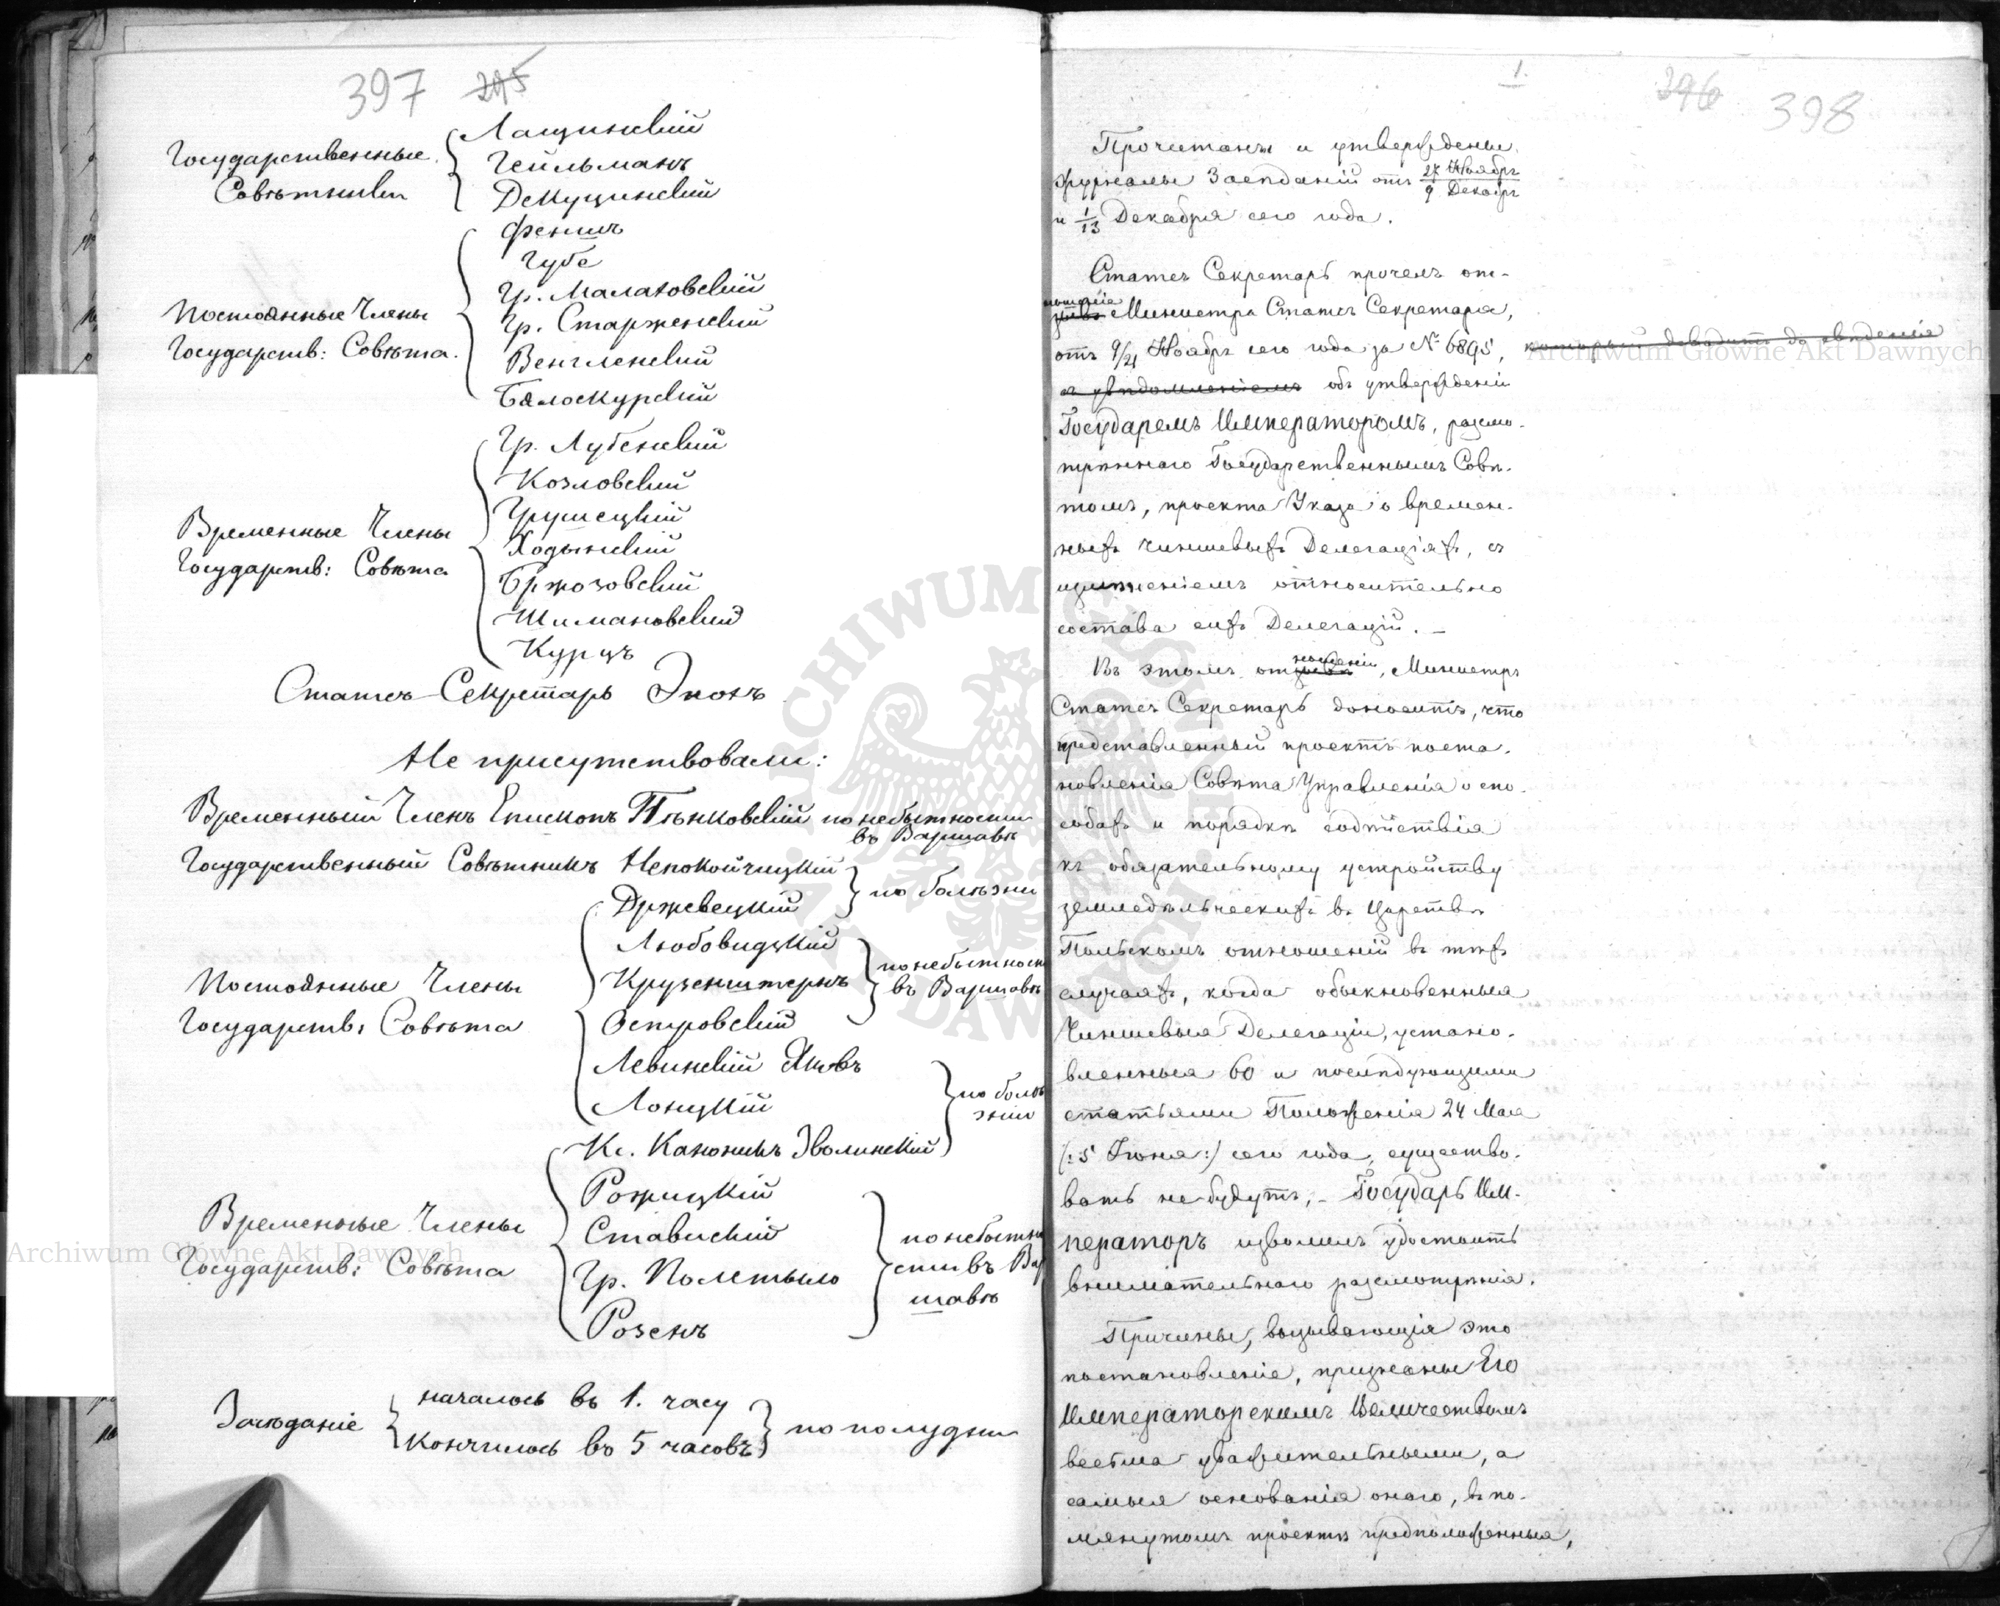 397 295
Государственные Совѣтники
Лащинскій
Гейльманъ
Декуцинскій
Постоянные Члены
Государств: Совѣта.
Феншъ
Губе
Гр. Малаховскій
Гр. Старженскій
Венгленскій
Бялоскурскій
Временные Члены
Государств: Совѣта
Гр. Лубенскій
Козловскій
Грушецкій
Ходынскій
Бржозовскій
Шимановскій
Курцъ
Статсъ-Секретарь Энохъ
Не присутствовали:
Временный Членъ Епископъ Пѣнковскій по небытности
въ Варшавѣ
Государственный Совѣтникъ Непокойчицкій
Држевецкій
по болѣзни
Постоянные Члены
Государств: Совѣта
Любовидзкій
Крузенштернъ
Островскій
по небытност
въ Варшавѣ
Левинскій Яковъ
Лонцкій
Кс. Каноникъ Зволинскій
по болѣ
зни
Временные Члены
Государств: Совѣта
Рожицкій
Ставискій
Гр. Полетыло
Розенъ
по небытно
сти въ Вар
шавѣ
Засѣданіе
началось въ 1. часу
кончилось въ 5 часовъ
по полудни
1.
296 398
Прочитаны и утверждены
журналы Засѣданій отъ 27 Ноябр / 9 Декабр
и 1/13 Декабря сего года.
Статсъ Секретарь прочелъ от-
ношеніе Министра Статсъ Секретаря,
отъ 9/21 Ноябр сего года за № 6895, который доводитъ до свѣденія
съ увѣдомленіемъ объ утвержденіи
Государемъ Императоромъ, разсмо-
трѣннаго Государственнымъ Совѣ-
томъ, проекта Указа о времен-
ныхъ Чиншевыхъ Делегаціяхъ, съ
измѣненіемъ относительно
состава сихъ Делегацій. —
Въ этомъ отношеніи, Министръ
Статсъ Секретарь доноситъ, что
представленный проектъ поста-
новленія Совѣта Управленія о спо-
собахъ и порядкѣ содѣйствія
къ обязательному устройству
земледѣльческихъ въ Царствѣ
Польскомъ отношеній въ тѣхъ
случаяхъ, когда обыкновенныя
Чиншевыя Делегаціи, устано-
вленныя 60 и послѣдующими
статьями Положенія 24 Мая
(: 5 Іюня :) сего года, существо-
вать не будутъ, — Государь Им-
ператоръ изволилъ удостоить
внимательнаго разсмотрѣнія.
Причины, вызывающія это
постановленіе, признаны Его
Императорскимъ Величествомъ
весьма уважительными, а
самыя основанія онаго, въ по-
мянутомъ проектѣ предположенныя,
Archiwum Główne Akt Dawnych
Archiwum Główne Akt Dawnych